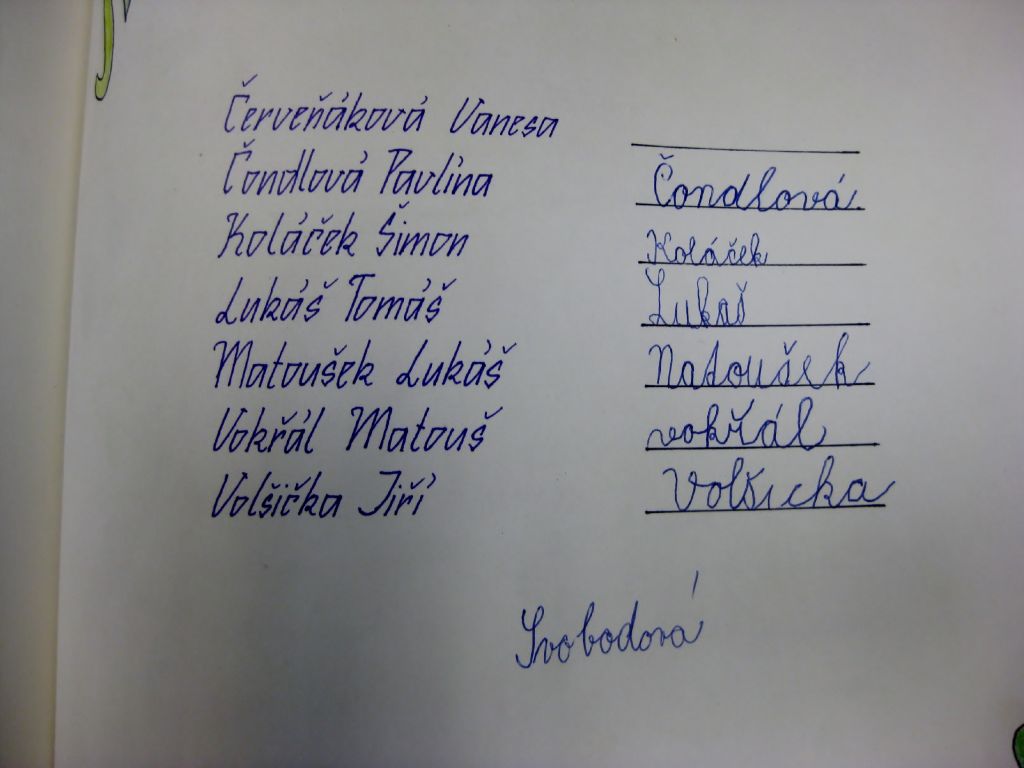 Červeňáková Vanesa
Čondlová Pavlína Čondlová
Koláček Šimon Koláček
Lukáš Tomáš Lukaš
Matoušek Lukáš Natoušek
Vokřál Matouš vokřál
Volšička Jiří Volšicka
Svobodová